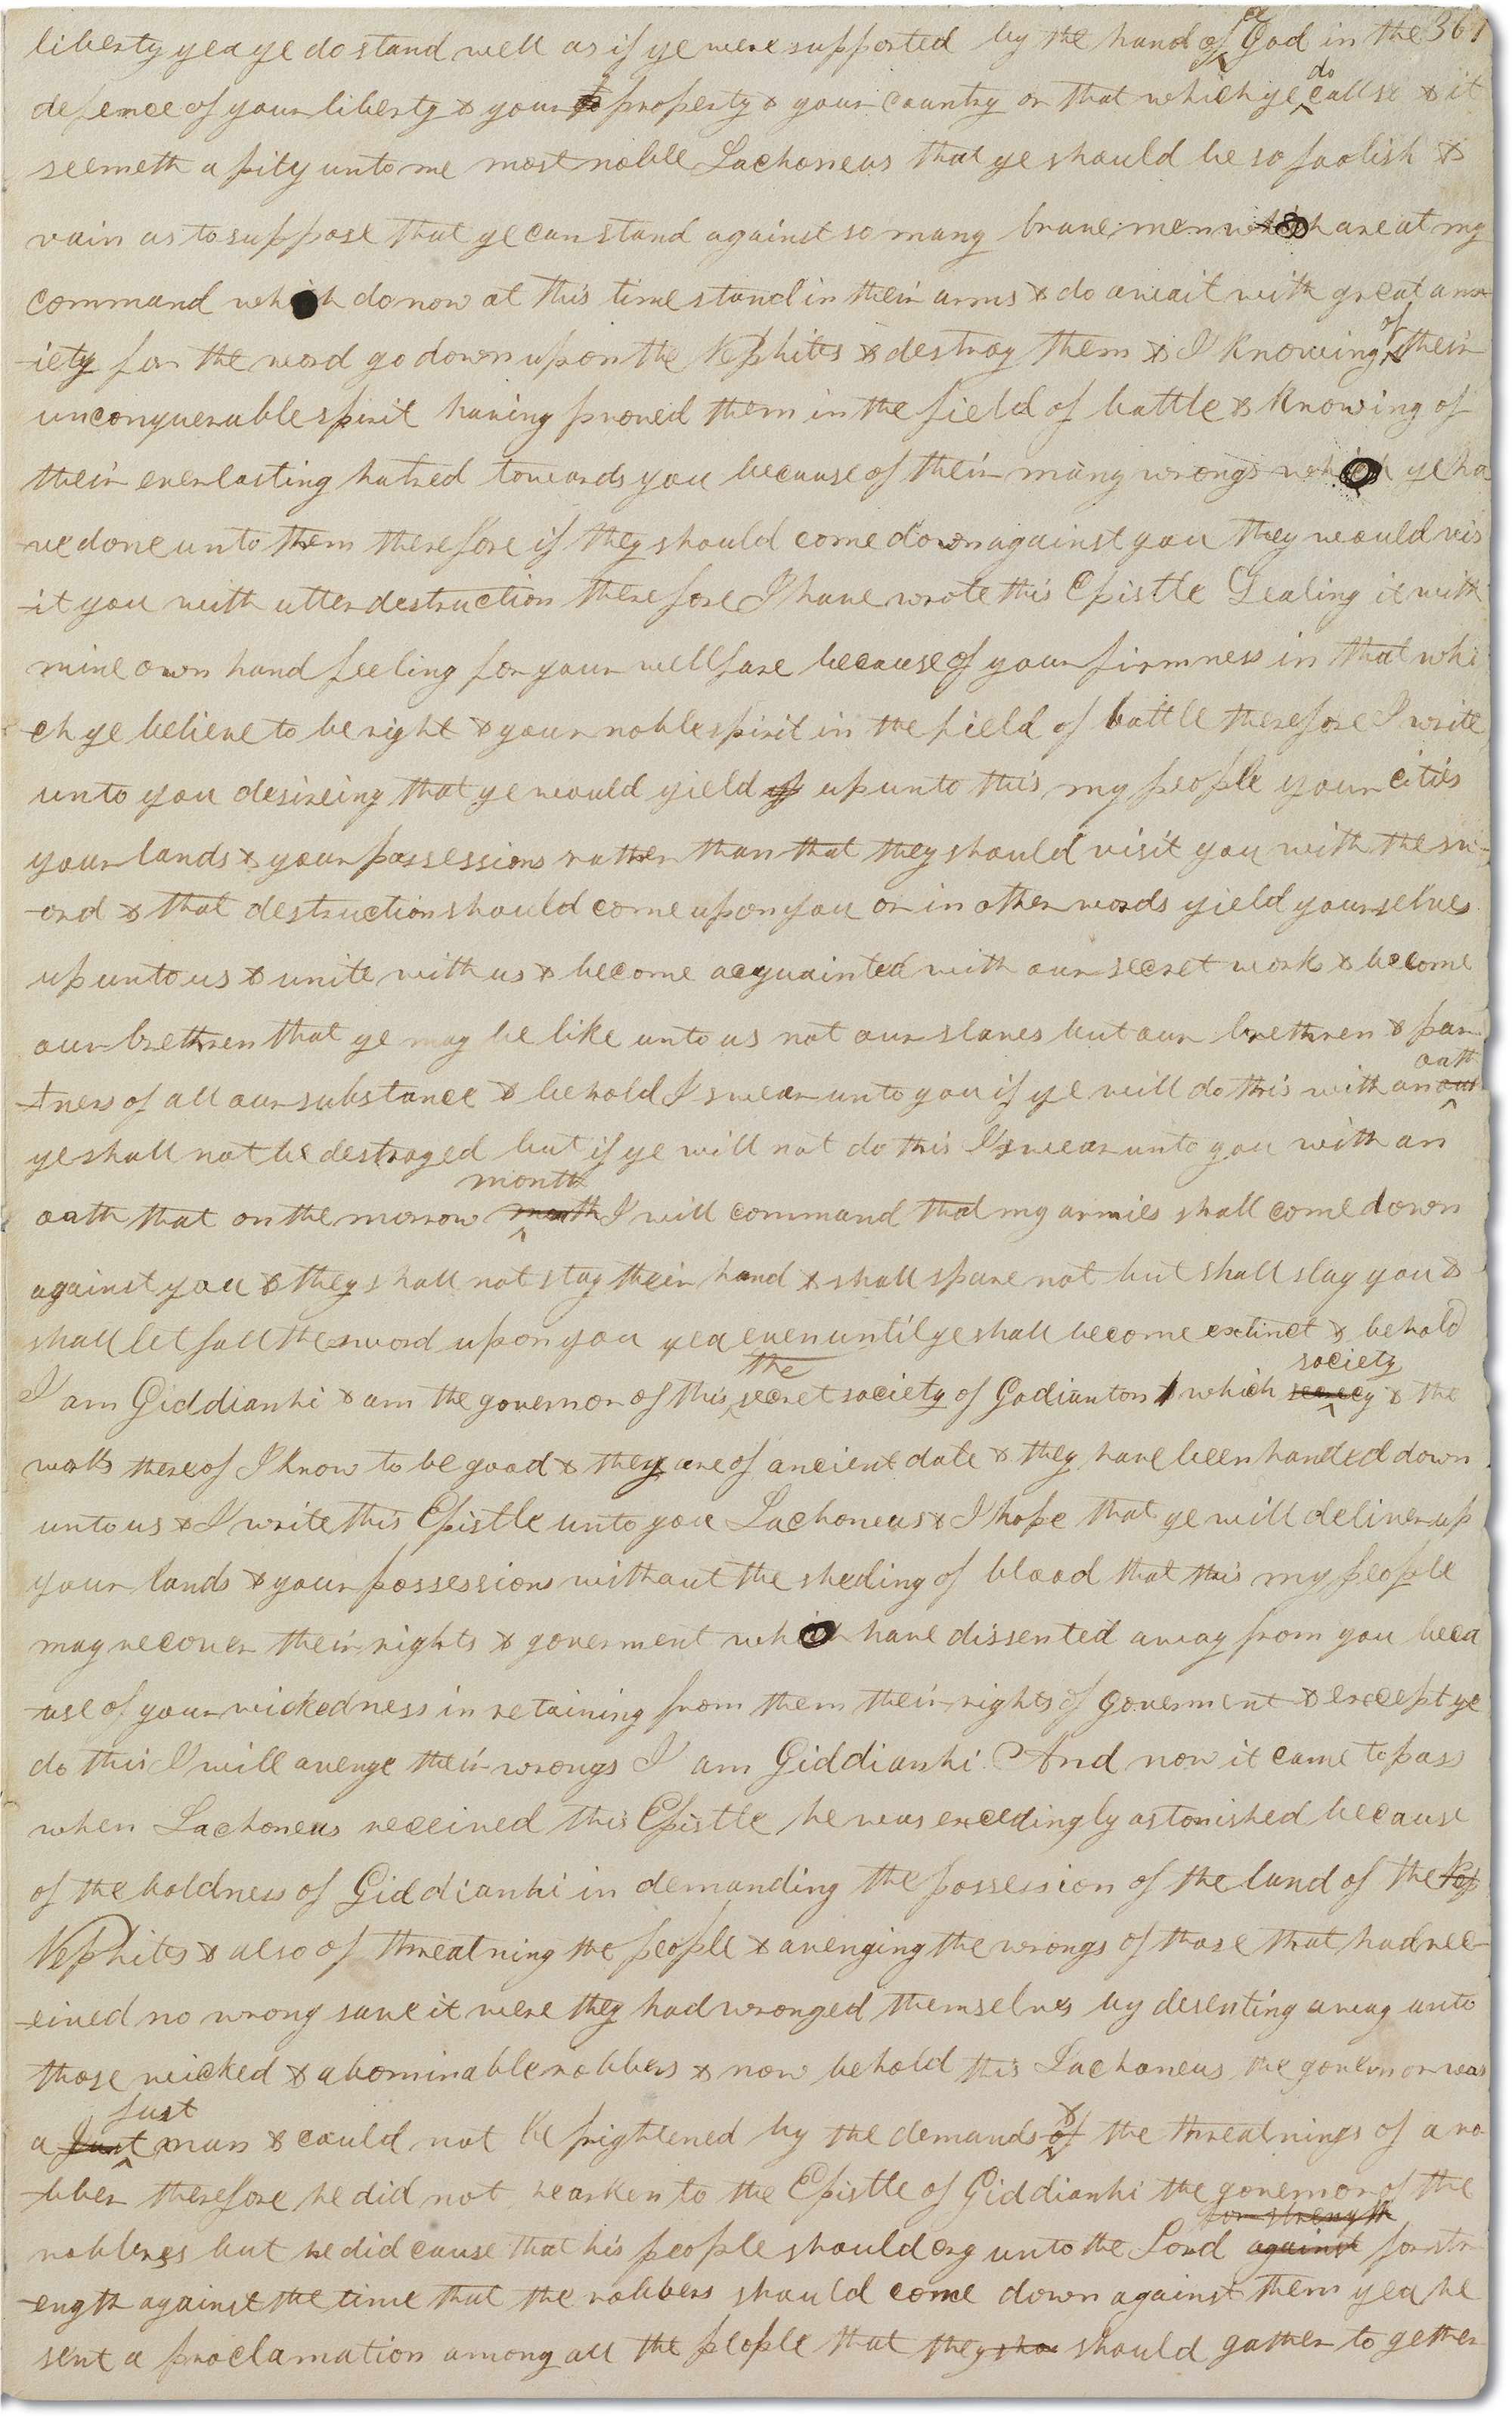 liberty yea ye do stand well as if ye were supported by the hand of a God in the 361
defence of your liberty & your property & your country or that which ye do call so & it
seemeth a pity unto me most noble Lachoneus that ye should be so foolish &
vain as to suppose that ye can stand against so many brave men which are at my
command which do now at this time stand in their arms & do await with great anx
-iety for the word go down upon the Nephites & destroy them & I knowing of their
unconquerable spirit having proved them in the field of battle & knowing of
their everlasting hatred towards you because of their many wrongs which ye ha
-ve done unto them therefore if they should come down against you they would vis
-it you with utter destruction therefore I have wrote this Epistle Sealing it with
mine own hand feeling for your wellfare because of your firmness in that whi
-ch ye believe to be right & your noble spirit in the field of battle therefore I write
unto you desireing that ye would yield up unto this my people your cities
your lands & your possessions rather than that they should visit you with the sw-
-ord & that destruction should come upon you or in other words yield yourselves
up unto us & unite with us & become acquainted with our secret works & become
our brethren that ye may be like unto us not our slaves but our brethren & par-
-tners of all our substance & behold I swear unto you if ye will do this with an oath
ye shall not be destroyed but if ye will not do this I swear unto you with an
oath that on the morrow month I will command that my armies shall come down
against you & they shall not stay their hand & shall spare not but shall slay you &
shall let fall the sword upon you yea even until ye shall become extinct & behold
I am Giddianhi & am the governor of this the secret society of Gadianton which society & the
works thereof I know to be good & they are of ancient date & they have been handed down
unto us & I write this Epistle unto you Lachoneus & I hope that ye will deliver up
your lands & your possessions without the sheding of blood that this my people
may recover their rights & goverment which have dissented away from you beca
-use of your wickedness in retaining from them their rights of goverment & except ye
do this I will avenge their wrongs I am Giddianhi And now it came to pass
when Lachoneus received this Epistle he was excedingly astonished because
of the boldness of Giddianhi in demanding the possession of the land of the Nep
Nephites & also of threatning the people & avenging the wrongs of those that had rec-
-eived no wrong save it were they had wronged themselves by desenting away unto
those wicked & abominable robbers & now behold this Lachoneus the governor was
a just man & could not be frightened by the demands & the threatnings of a ro
-bber therefore he did not hearken to the Epistle of Giddianhi the governor of the
robbers but he did cause that his people should cry unto the Lord against for strength for str
-ength against the time that the robbers should come down against them yea he
sent a proclamation among all the people that they sho should gather together